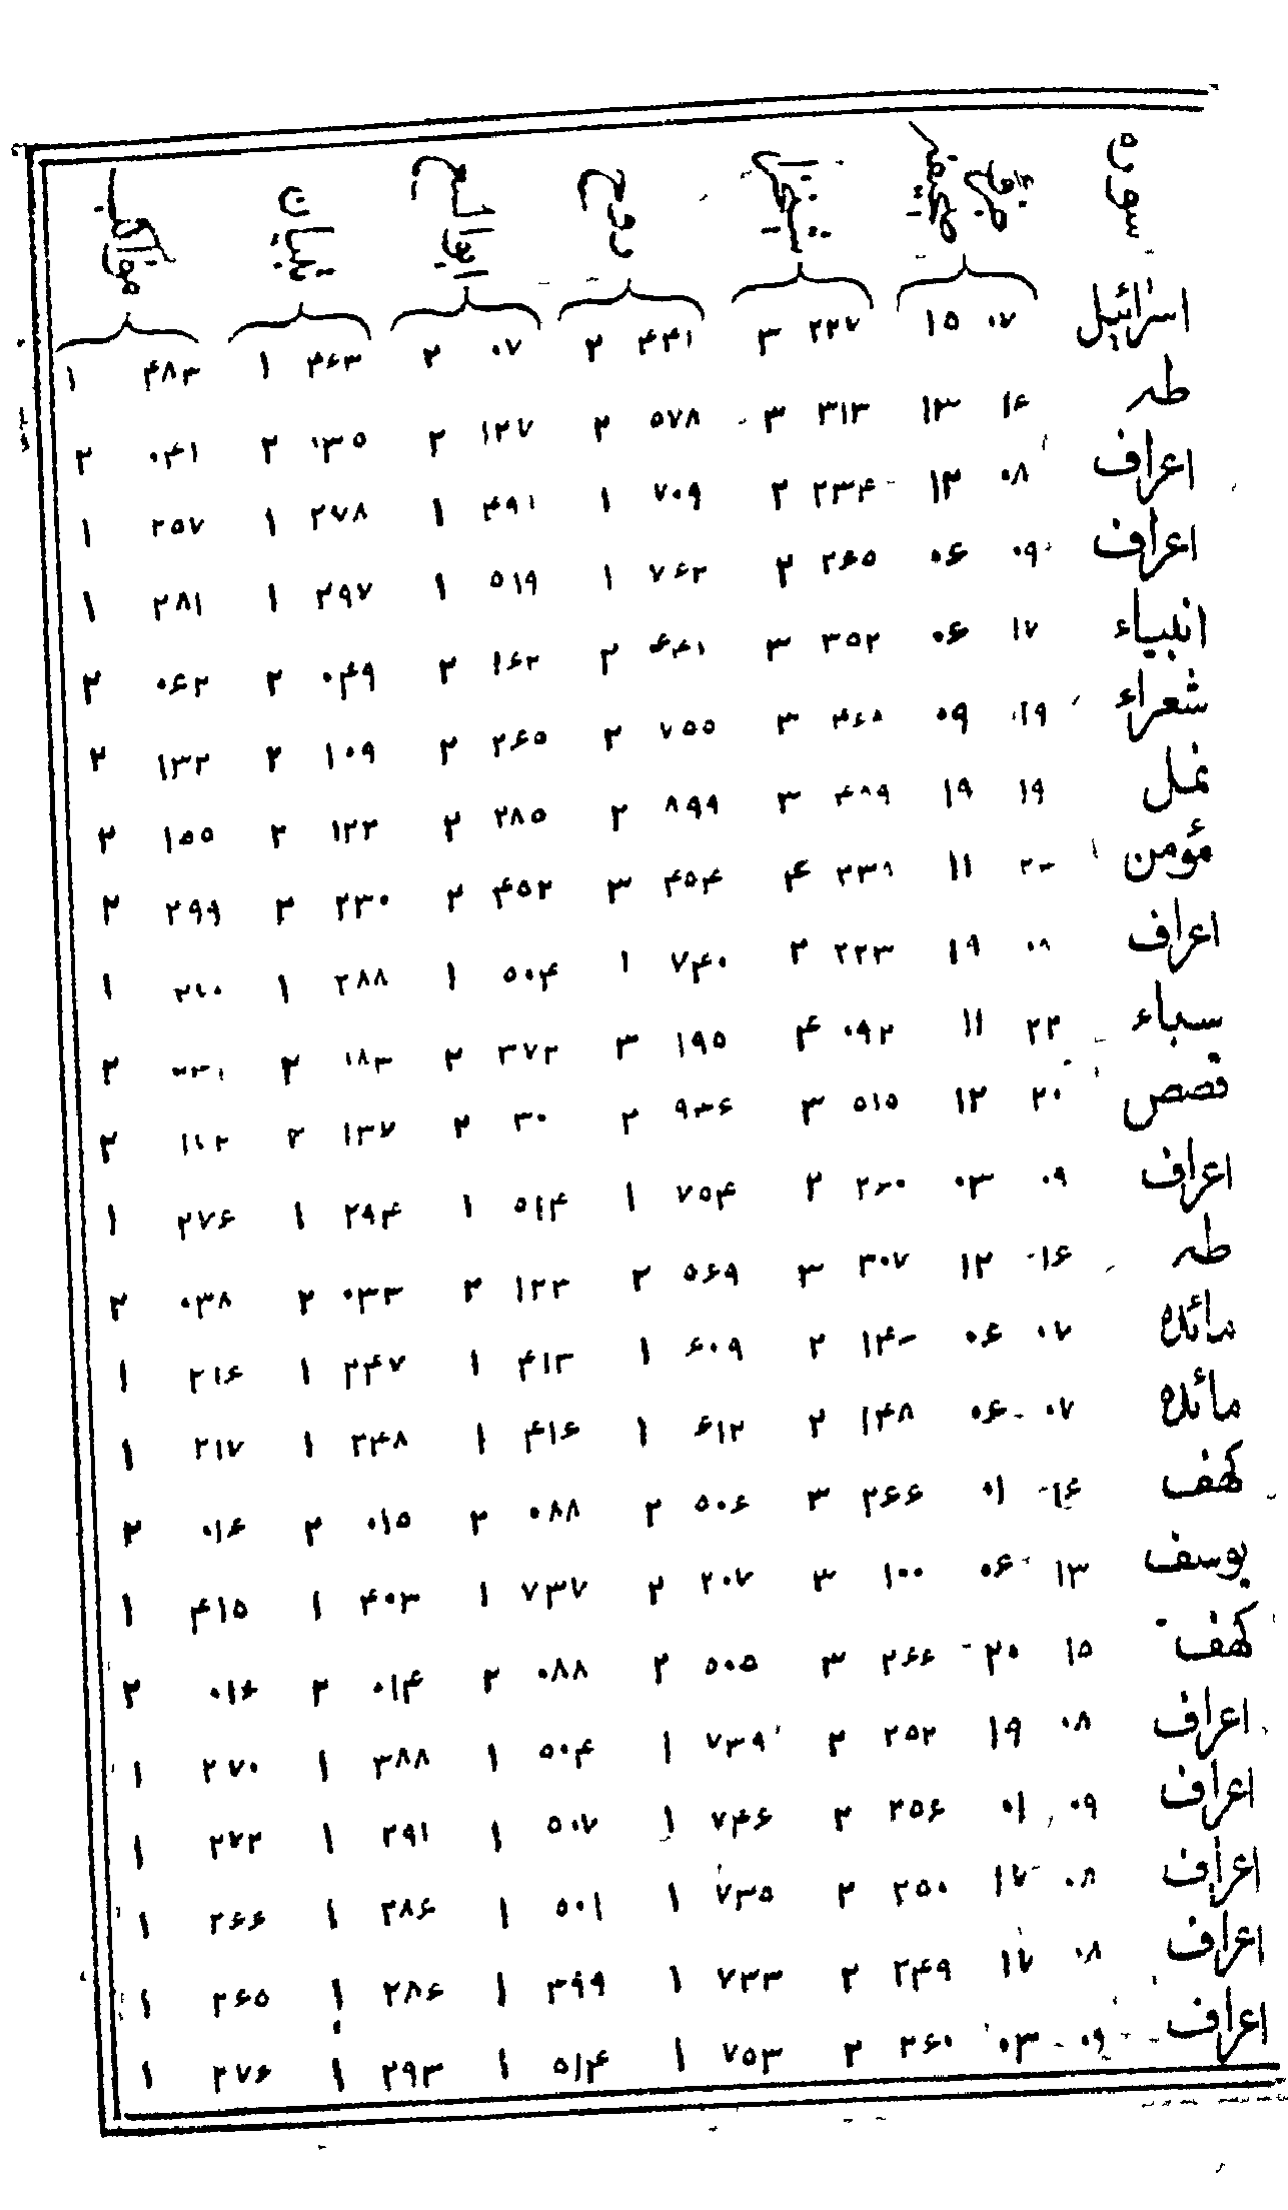 سوره
اسرائیل ۰۷ ۱۵ ۲۲۷ ۳ ۴۴۱ ۲ ۰۷ ۲ ۴۶۳ ۱ ۴۸۳ ۱
طه ۱۶ ۱۳ ۳۱۳ ۳ ۵۷۸ ۲ ۱۲۷ ۲ ۰۳۵ ۲ ۰۴۱ ۲
اعراف ۰۸ ۱۲ ۲۳۴ ۲ ۷۰۹ ۱ ۴۹۱ ۱ ۲۷۸ ۱ ۲۵۷ ۱
اعراف ۰۹ ۰۶ ۲۶۵ ۲ ۷۶۲ ۱ ۵۱۹ ۱ ۲۹۷ ۱ ۲۸۱ ۱
انبیاء ۱۷ ۰۶ ۳۵۲ ۳ ۶۴۱ ۲ ۱۶۲ ۲ ۰۴۹ ۲ ۰۶۲ ۲
شعراء ۱۹ ۰۹ ۳ ۷۵۵ ۲ ۲۶۵ ۲ ۱۰۹ ۲ ۱۳۲ ۲
نمل ۱۹ ۱۹ ۴۸۹ ۳ ۸۹۹ ۲ ۲۸۵ ۲ ۱۲۲ ۲ ۱۵۵ ۲
مؤمن ۱۱ ۴ ۴۵۴ ۳ ۴۵۲ ۲ ۲۳۰ ۲ ۲۹۹ ۲
اعراف ۰۸ ۱۹ ۲۲۳ ۲ ۷۴۰ ۱ ۵۰۴ ۱ ۲۸۸ ۱ ۱
سباء ۲۲ ۱۱ ۰۹۲ ۴ ۱۹۵ ۳ ۳۷۲ ۲ ۱۸۳ ۲ ۲
قصص ۲۰ ۱۲ ۵۱۵ ۳ ۹۳۶ ۲ ۳۰ ۲ ۱۳۷ ۲ ۲
اعراف ۰۹ ۰۳ ۲۶۰ ۲ ۷۵۴ ۱ ۵۱۴ ۱ ۲۹۴ ۱ ۲۷۶ ۱
طه ۱۶ ۱۲ ۳۰۷ ۳ ۵۶۹ ۲ ۱۲۲ ۲ ۰۳۳ ۲ ۰۳۸ ۲
مائده ۰۷ ۰۶ ۲ ۶۰۹ ۱ ۴۱۳ ۱ ۲۴۷ ۱ ۲۱۶ ۱
مائده ۰۷ ۰۶ ۱۴۸ ۲ ۶۱۲ ۱ ۴۱۶ ۱ ۲۴۸ ۱ ۲۱۷ ۱
کهف ۱۶ ۰۱ ۲۶۶ ۳ ۵۰۶ ۲ ۰۸۸ ۲ ۰۱۵ ۲ ۰۱۶ ۲
یوسف ۱۳ ۰۶ ۱۰۰ ۳ ۲۰۷ ۲ ۷۳۷ ۱ ۴۰۳ ۱ ۴۱۵ ۱
کهف ۱۵ ۲۰ ۲۶۶ ۳ ۵۰۵ ۲ ۰۸۸ ۲ ۰۱۴ ۲ ۰۱۶ ۲
اعراف ۰۸ ۱۹ ۲۵۲ ۲ ۷۳۹ ۱ ۵۰۴ ۱ ۳۸۸ ۱ ۲۷۰ ۱
اعراف ۰۹ ۰۱ ۲۵۶ ۲ ۷۴۶ ۱ ۵۰۷ ۱ ۲۹۱ ۱ ۲۷۲ ۱
اعراف ۰۸ ۱۷ ۲۵۰ ۲ ۷۳۵ ۱ ۵۰۱ ۱ ۲۸۶ ۱ ۲۶۶ ۱
اعراف ۰۸ ۱۷ ۲۴۹ ۲ ۷۳۳ ۱ ۴۹۹ ۱ ۲۸۶ ۱ ۲۶۵ ۱
اعراف ۰۹ ۰۳ ۲۶۰ ۲ ۷۵۳ ۱ ۵۱۴ ۱ ۲۹۳ ۱ ۲۷۶ ۱